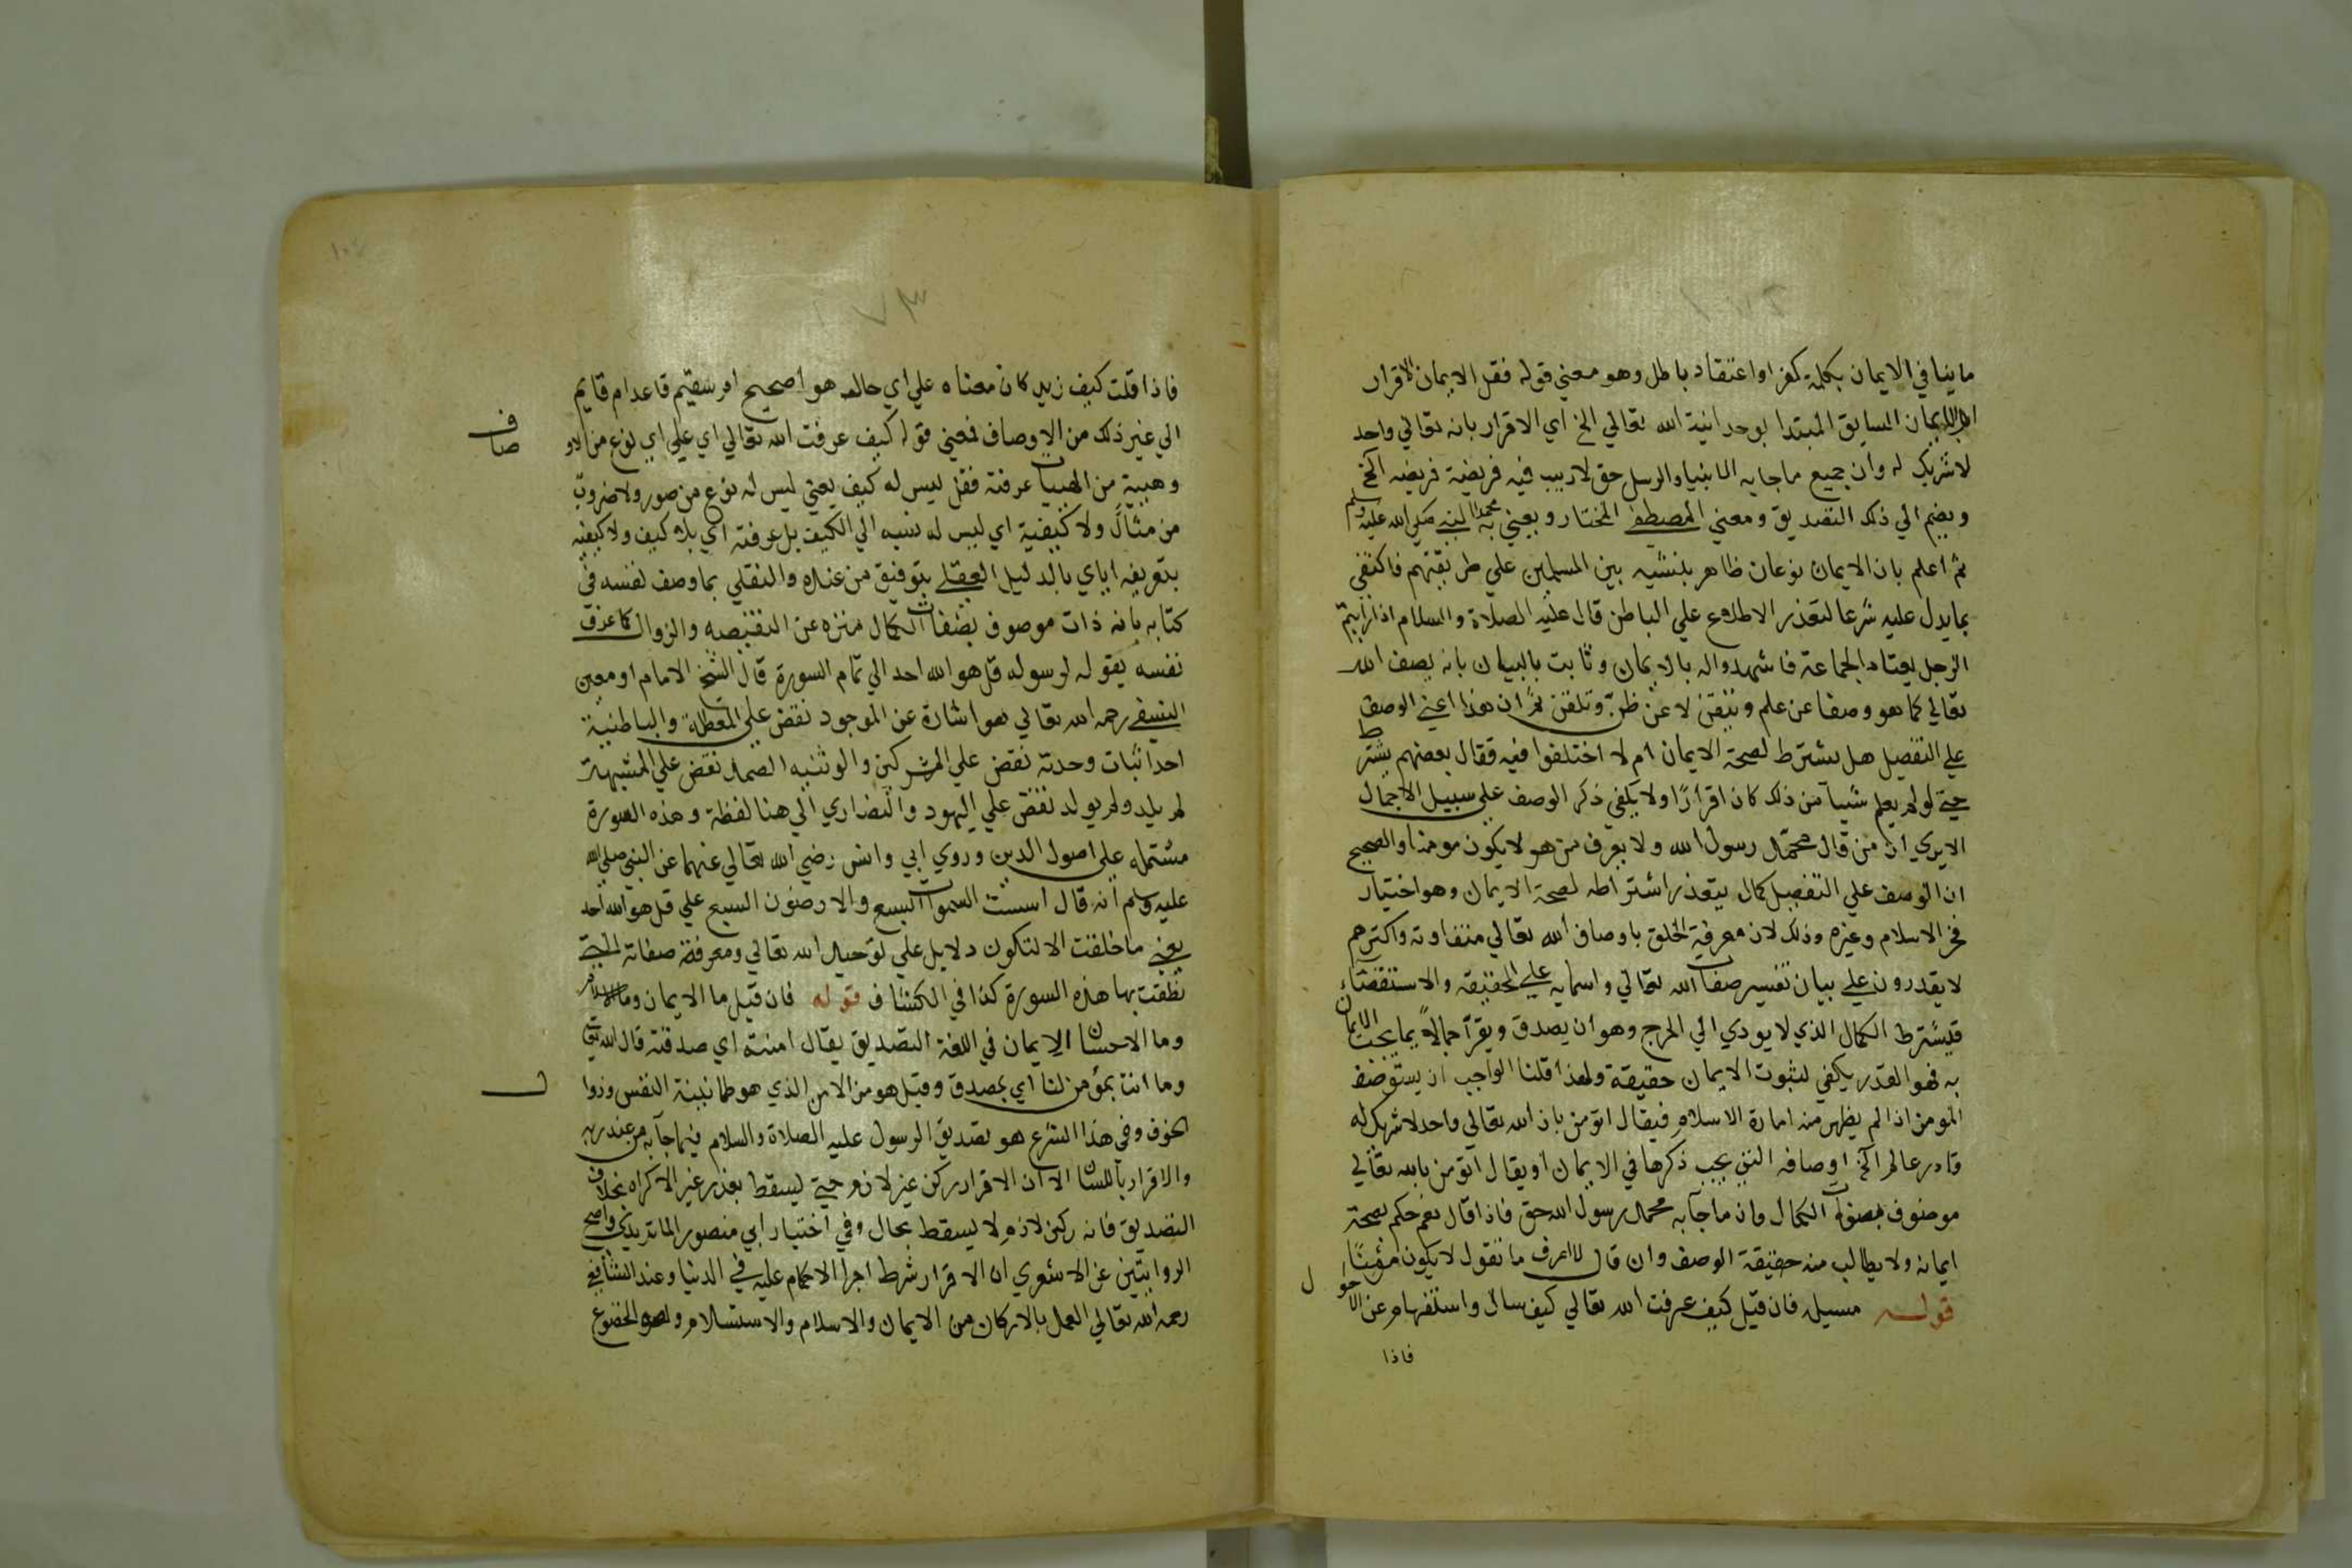 ما ينافي الايمان بكلمة كفر او اعتقاد باطل وهو معني قوله فقل الايمان الاقرار
الايمان السابق المبتدا بوحدانية الله تعالي الخ اي الاقرار بانه تعالي واحد
لا شريك له وان جميع ما جا به الانبيا والرسل حق لا ريب فيه فريضة فريضه الخ
ويضم الي ذلك التصديق ومعني المصطفي المختار ويعني به محمدا النبي صلي الله عليه وسلم
ثم اعلم بان الايمان نوعان ظاهر بنشيه بين المسلمين علي طريقتهم فاكتفي
بما يدل عليه شرعا لتعذر الاطلاع علي الباطن قال عليه الصلاة والسلام اذا رايتم
الرجل يعتاد الجماعة فاشهدوا له بالايمان وثابت بالبيان بانه يصف الله
تعالي كما هو وصفا عن علم وتيقن لا عن ظن وتلقن ثم ان هذا اعني الوصف
علي التفصيل هل يشترط لصحة الايمان ام لا اختلفوا فيه فقال بعضهم يشترط
حتي لو لم يعلم شيا من ذلك كان اقرارا ولا يكفي ذكر الوصف علي سبيل الاجمال
الا يري ان من قال محمد رسول الله ولا يعرف من هو لا يكون مومنا والصحيح
ان الوصف علي التفصيل كمال يتعذر اشتراطه لصحة الايمان وهو اختيار
فخر الاسلام وغيره وذلك لان معرفة الخلق باوصاف الله تعالي متفاوته واكثرهم
لا يقدرون علي بيان تفسير صفات الله تعالي واسمايه علي الحقيقه والاستقصاء
فيشترط الكمال الذي لا يودي الي الحرج وهو ان يصدق ويقر اجمالا بما يجب الايمان
به فهو القدر يكفي لثبوت الايمان حقيقة ولهذا قلنا الواجب ان يستوصف
المومن اذا لم يظهر منه امارة الاسلام فيقال اتومن بان الله تعالي واحد لا شريك له
قادر عالم الخ اوصافه التي يجب ذكرها في الايمان او يقال اتومن بالله تعالي
موصوف بصفات الكمال وان ما جآ به محمد رسول الله حق فاذا قال نعم حكم بصحة
ايمانه ولا يطالب منه حقيقة الوصف وان قال لا اعرف ما تقول لا يكون مؤمنا
قوله مسيله فان قيل كيف عرفت الله تعالي كيف سال واستفهام عن الاحوال
فاذا
فاذا قلت كيف زيد كان معناه علي اي حاله هو اصحيح او سقيم قاعد ام قايم
الي غير ذلك من الاوصاف فمعني قوله كيف عرفت الله تعالي اي علي اي نوع من الاوصاف
وهيية من الهييات عرفته فقل ليس له كيف يعني ليس له نوع من صور ولا ضروب
من مثال ولا كيفية اي ليس له نسبه الي الكيف بل عرفته اي بلا كيف ولا كيفيه
بتعريفه اياي بالدليل العقلي بتوفيق من عنده والنقلي بما وصف نفسه في
كتابه بانه ذات موصوف بصفات الكمال منزه عن النقيصه والزوال كما عرف
نفسه بقوله لرسوله قل هو الله احد الي تمام السورة قال الشيخ الامام او معين
النسفي رحمه الله تعالي هو اشارة عن الموجود نقض علي المعطلة والباطنية
احد اثبات وحدته نقض علي المشركين والوثنيه الصمد نقض علي المشبهة
لم يلد ولم يولد نقض علي اليهود والنصاري الي هنا لفظه وهذه السورة
مشتمله علي اصول الدين وروي ابي وانس رضي الله تعالي عنهما عن النبي صلي الله
عليه وسلم انه قال اسست السموات السبع والارضون السبع علي قل هو الله احد
يعني ما خلقت الا لتكون دلايل علي توحيد الله تعالي ومعرفة صفاته التي
نطقت بها هذه السورة كذا في الكشاف قوله فان قيل ما الايمان وما الاسلام
وما الاحسان الايمان في اللغة التصديق يقال امنته اي صدقته قال الله تعالي
وما انت بمؤمن لنا اي بمصدق وقيل هو من الامن الذي هو طمانينة النفس وزوال
الخوف وفي هذا الشرع هو تصديق الرسول عليه الصلاة والسلام فيما جآ به من عند ربه
والاقرار باللسان الا ان الاقرار ركن غير لازم حتي يسقط بعذر غير الاكراه بخلاف
التصديق فانه ركن لازم لا يسقط بحال وفي اختيار ابي منصور الماتريدي واصح
الروايتين عن الاشعري ان الاقرار شرط اجرا الاحكام عليه في الدنيا وعند الشافعي
رحمه الله تعالي العمل بالاركان من الايمان والاسلام والاستسلام وهو الخضوع